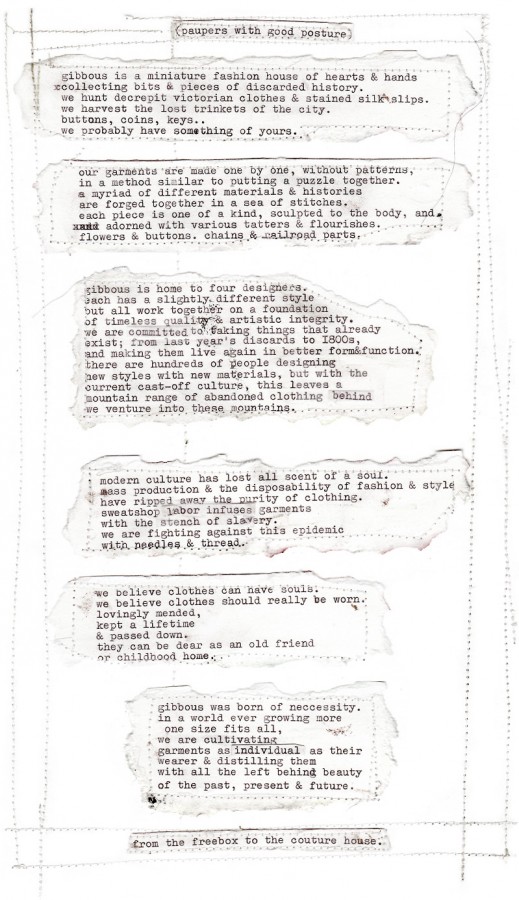 (paupers with good posture)
gibbous is a miniature fashion house of hearts & hands
xcollecting bits & pieces of discarded history.
we hunt decrepit victorian clothes & stained silk slips.
we harvest the lost trinkets of the city.
buttons, coins, keys..
we probably have something of yours.
our garments are made one by one, without patterns,
in a method similar to putting a puzzle together.
a myriad of different materials & histories
are forged together in a sea of stitches.
each piece is one of a kind, sculpted to the body, and
adorned with various tatters & flourishes.
flowers & buttons. chains & railroad parts.
gibbous is home to four designers.
each has a slightly different style
but all work together on a foundation
of timeless quality & artistic integrity.
we are committed to taking things that already
exist; from last year's discards to I800s,
and making them live again in better form&function.
there are hundreds of people designing
new styles with new materials, but with the
current cast-off culture, this leaves a
mountain range of abandoned clothing behind
we venture into these mountains.
modern culture has lost all scent of a soul.
mass production & the disposability of fashion & style
have ripped away the purity of clothing.
sweatshop labor infuses garments
with the stench of slavery.
we are fighting against this epidemic
with needles & thread.
we believe clothes can have souls.
we believe clothes should really be worn.
lovingly mended,
kept a lifetime
& passed down.
they can be dear as an old friend
or childhood home.
gibbous was born of neccessity.
in a world ever growing more
one size fits all,
we are cultivating
garments as individual as their
wearer & distilling them
with all the left behind beauty
of the past, present & future.
from the freebox to the couture house.